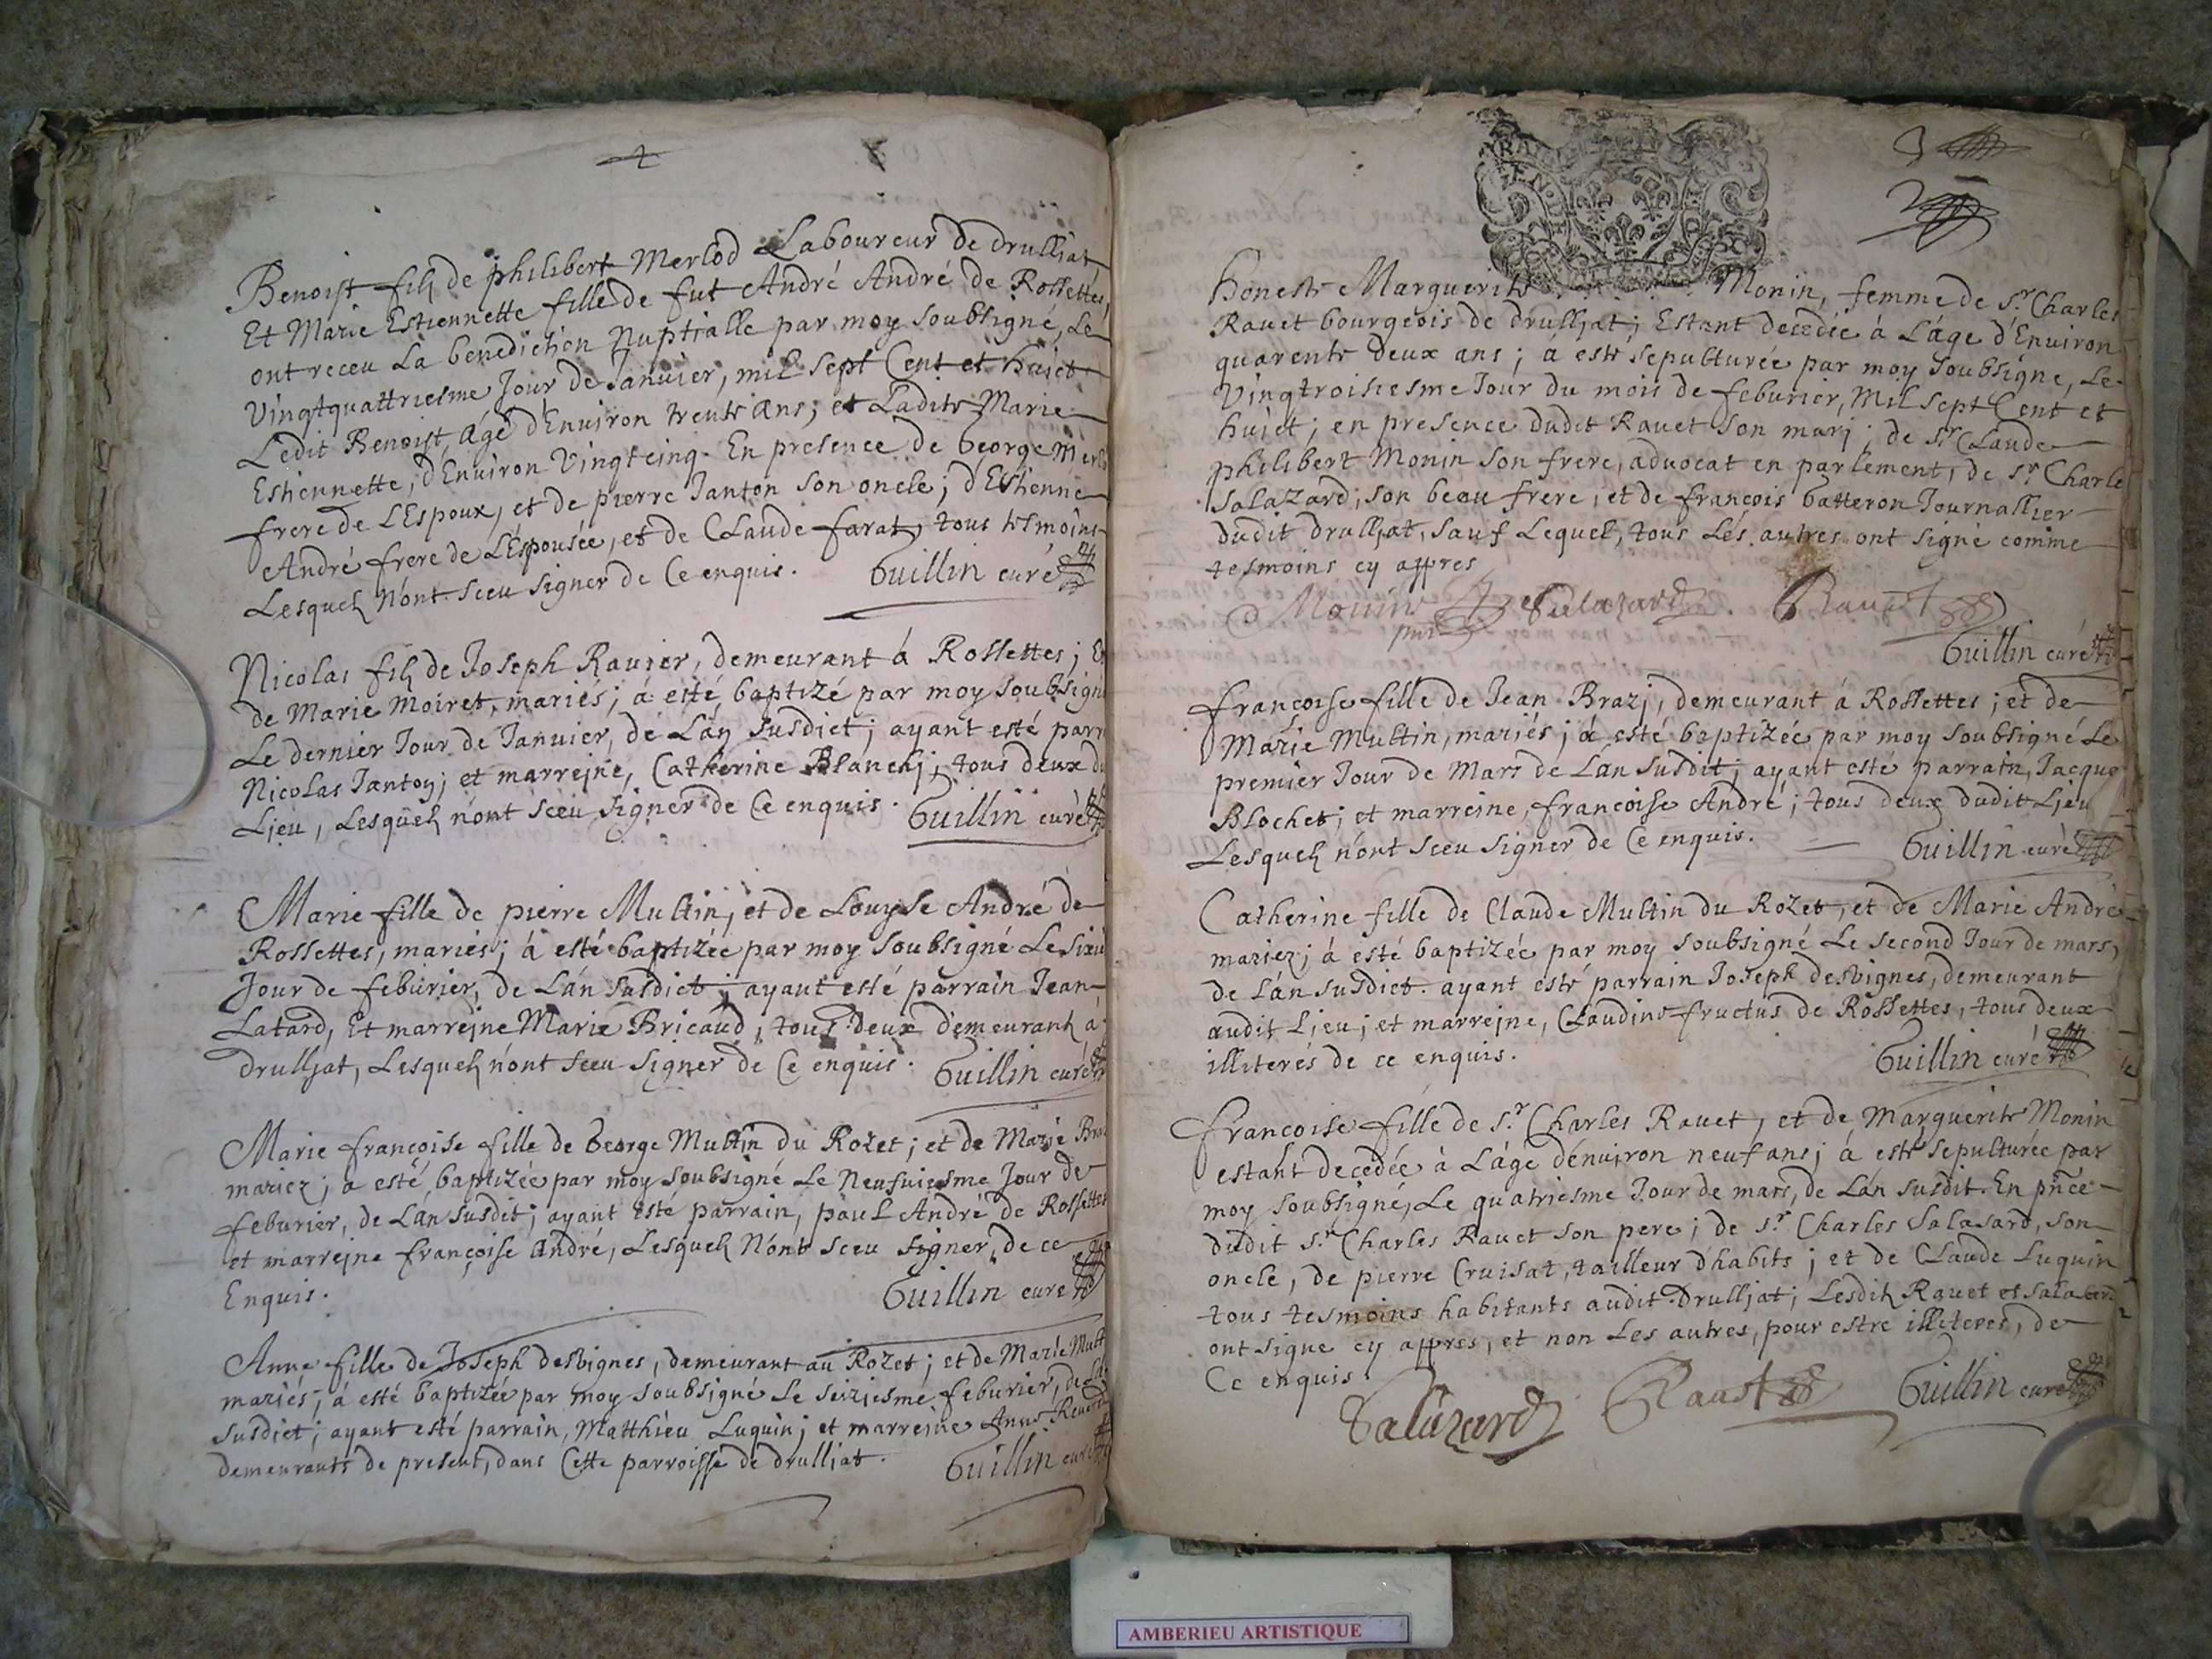 Benoist filz de philibert Merlod Laboureur de drulliat
Et Marie Estiennette fille de fut André André de Rossettes,
ont receu La benediction Nuptialle par moy soubsigné, Le
Vingtquattriesme Jour de Janvier, mil sept Cent et huict
Ledit Benoist, âgé d'Environ trente Ans; et Ladite Marie
Estiennette, d'Environ Vingtcinq. En presence de George Merlo
frere de L'Espoux, et de pierre Janton son oncle; d'Estienne
André frere de L'Espousée, et de Claude farat, tous tesmoins
Lesquelz n'ont sceu signer de Ce enquis. Guillin curé
Nicolas filz de Joseph Ravier, demeurant á Rossettes; Et
de Marie Moiret, mariés; á esté baptizé par moy soubsigné
Le dernier Jour de Janvier, de L'an susdict; ayant esté parr
Nicolas Janton; et marreine, Catherine Blanchj; tous deux du
Ljeu, Lesquelz n'ont sceu signer de Ce enquis. Guillin curé
Marie fille de pierre Multin, et de Louyse André de
Rossettes, mariés; á esté baptizée par moy soubsigné Le sixie
Jour de feburier, de L'an susdict; ayant esté parrain Jean
Latard, Et marrejne Marie Bricaud, tous deux demeurantz a
drulljat, Lesquelz n'ont sceu signer de Ce enquis. Guillin curé
Marie françoise fille de George Multin du Rozet; et de Marie
mariez; a esté baptizée par moy soubsigné Le Neufuiesme Jour de
feburier, de L'an susdit; ayant esté parrain, paul André de Rossettes
et marrejne françoise André, Lesquelz N'ont sceu signer, de ce
Enquis. Guillin curé
Anne fille de Joseph desvignes, demeurant au Rozet; et de Marie Mult
mariés; á esté baptizée par moy soubsigné Le seiziesme feburier, de L'an
susdict; ayant esté parrain, Matthieu Luquin; et marreine Anne
demeurants de present, dans Cette parroisse de drulliat. Guillin curé
Honeste Marguerite Monin, femme de Sr. Charles
Ravet bourgeois de drulljat; Estant decedée á L'áge d'Environ
quarente deux ans; á esté sepulturée par moy soubsigné, Le
Vingtroisiesme Jour du mois de feburier, Mil sept Cent et
huict; en presence dudit Ravet son marj; de Sr. Claude
philibert Monin son frere, advocat en parlement, de Sr. Charle
Salazard, son beau frere, et de françois Gatteron Journallier
dudit drulljat, sauf Lequel, tous Les autres ont signé comme
tesmoins cy appres
Monin Salazard Ravet
Guillin curé
françoise fille de Jean Brazj, demeurant á Rossettes; et de
Marie Multin, mariés; á esté baptizée par moy soubsigné Le
premier Jour de Mars de L'an susdit; ayant esté parrain, Jacque
Blochet; et marreine, françoise André; tous deux dudit Ljeu
Lesquelz n'ont sceu signer de Ce enquis. Guillin curé
Catherine fille de Claude Multin du Rozet, et de Marie André
mariez; á esté baptizée par moy soubsigné Le second Jour de mars,
de L'án susdict. ayant esté parrain Joseph desvignes, demeurant
audit Lieu; et marrejne, Claudine fructus de Rossettes, tous deux
illiterés de ce enquis. Guillin curé
françoise fille de Sr. Charles Ravet, et de Marguerite Monin
estant decedée à L'áge d'énviron neuf ans; á esté sepulturée par
moy soubsigné, Le quatriesme Jour de mars, de L'an susdit. En pñce
dudit Sr. Charles Ravet son pere; de Sr. Charles Salasard, son
oncle, de pierre Cruisat, tailleur d'habits; et de Claude Luquin
tous tesmoins habitants audit Drulljat; Lesditz Ravet et Salasard
ont signe cy appres, et non Les autres, pour estre illiteres, de
Ce enquis
Salazard Ravet Guillin curé
AMBERIEU ARTISTIQUE